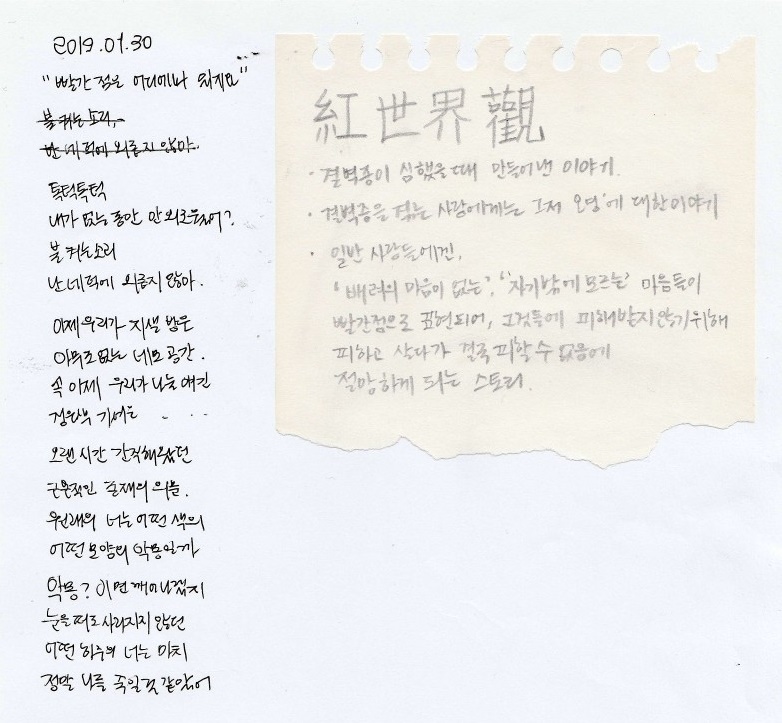 2019.01.30
"빨간 점은 어디에나 있지요"
불 켜는 소리,
난 네 덕에 외롭지 않아.
특턱특턱
내가 없는 동안 안 외로웠어?
불 켜는 소리
난 네 덕에 외롭지 않아.
이제 우리가 지샐 밤은
아무도 없는 네모 공간.
속 이제 우리가 나눌 얘긴
검은색
오랜 시간 간직해왔던
근본적인 존재의 의문.
원래의 너는 어떤 색의
어떤 모양의 악몽일까
악몽? 이면 깨어나겠지
눈을 떠도 사라지지 않던
어떤 하루의 너는 마치
정말 나를 죽일 것 같았어
紅世界觀
· 결벽증이 심했을 때 만들어낸 이야기.
· 결벽증을 겪는 사람에게는 그저 '오명'에 대한 이야기
· 일반 사람들에겐,
'배려의 마음이 없는', '자기밖에 모르는' 마음들이
빨간점으로 표현되어, 그것들에 피해받지 않기 위해
피하고 살다가 결국 피할 수 없음에
절망하게 되는 스토리.